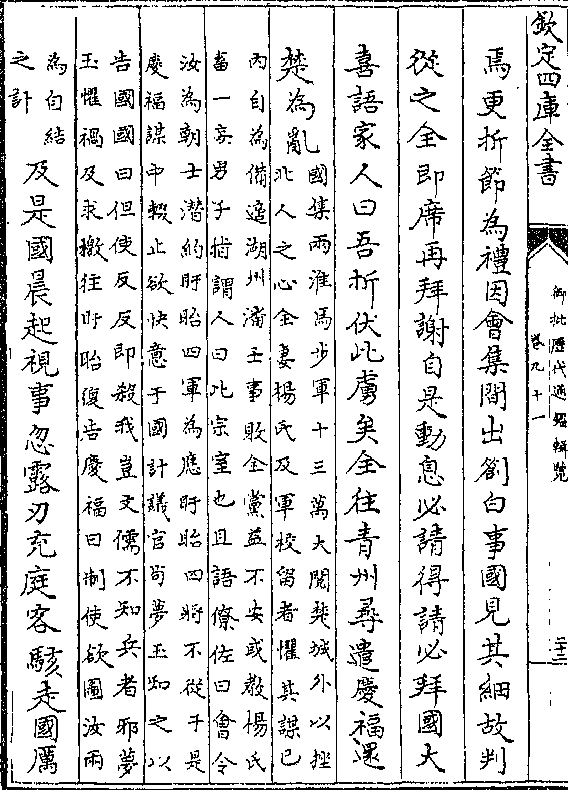 欽定四庫全書
御批歷代通鑑輯覽
卷九十一
二十三
焉更折節為禮因會集間出劄白事國見其細故判
從之全即席再拜謝自是動息必請得請必拜國大
喜語家人曰吾折伏此虜矣全往青州尋遣慶福還
楚為亂
國集兩淮馬步軍十三萬大閱楚城外以挫
北人之心全妻楊氏及軍校留者懼其謀已
内自為備適湖州潘壬事敗全黨益不安或教楊氏
畜一妄男子指謂人曰此宗室也且語僚佐曰會令
汝為朝士潛約盱眙四軍為應盱眙四將不從于是
慶福謀中輟止欲快意于國計議官苟夢玉知之以
告國國曰但使反反即殺我豈文儒不知兵者邪夢
玉懼禍及求檄往盱眙復告慶福曰制使欲圖汝兩
為自結
之計
及是國晨起視事忽露刃充庭客駭走國厲